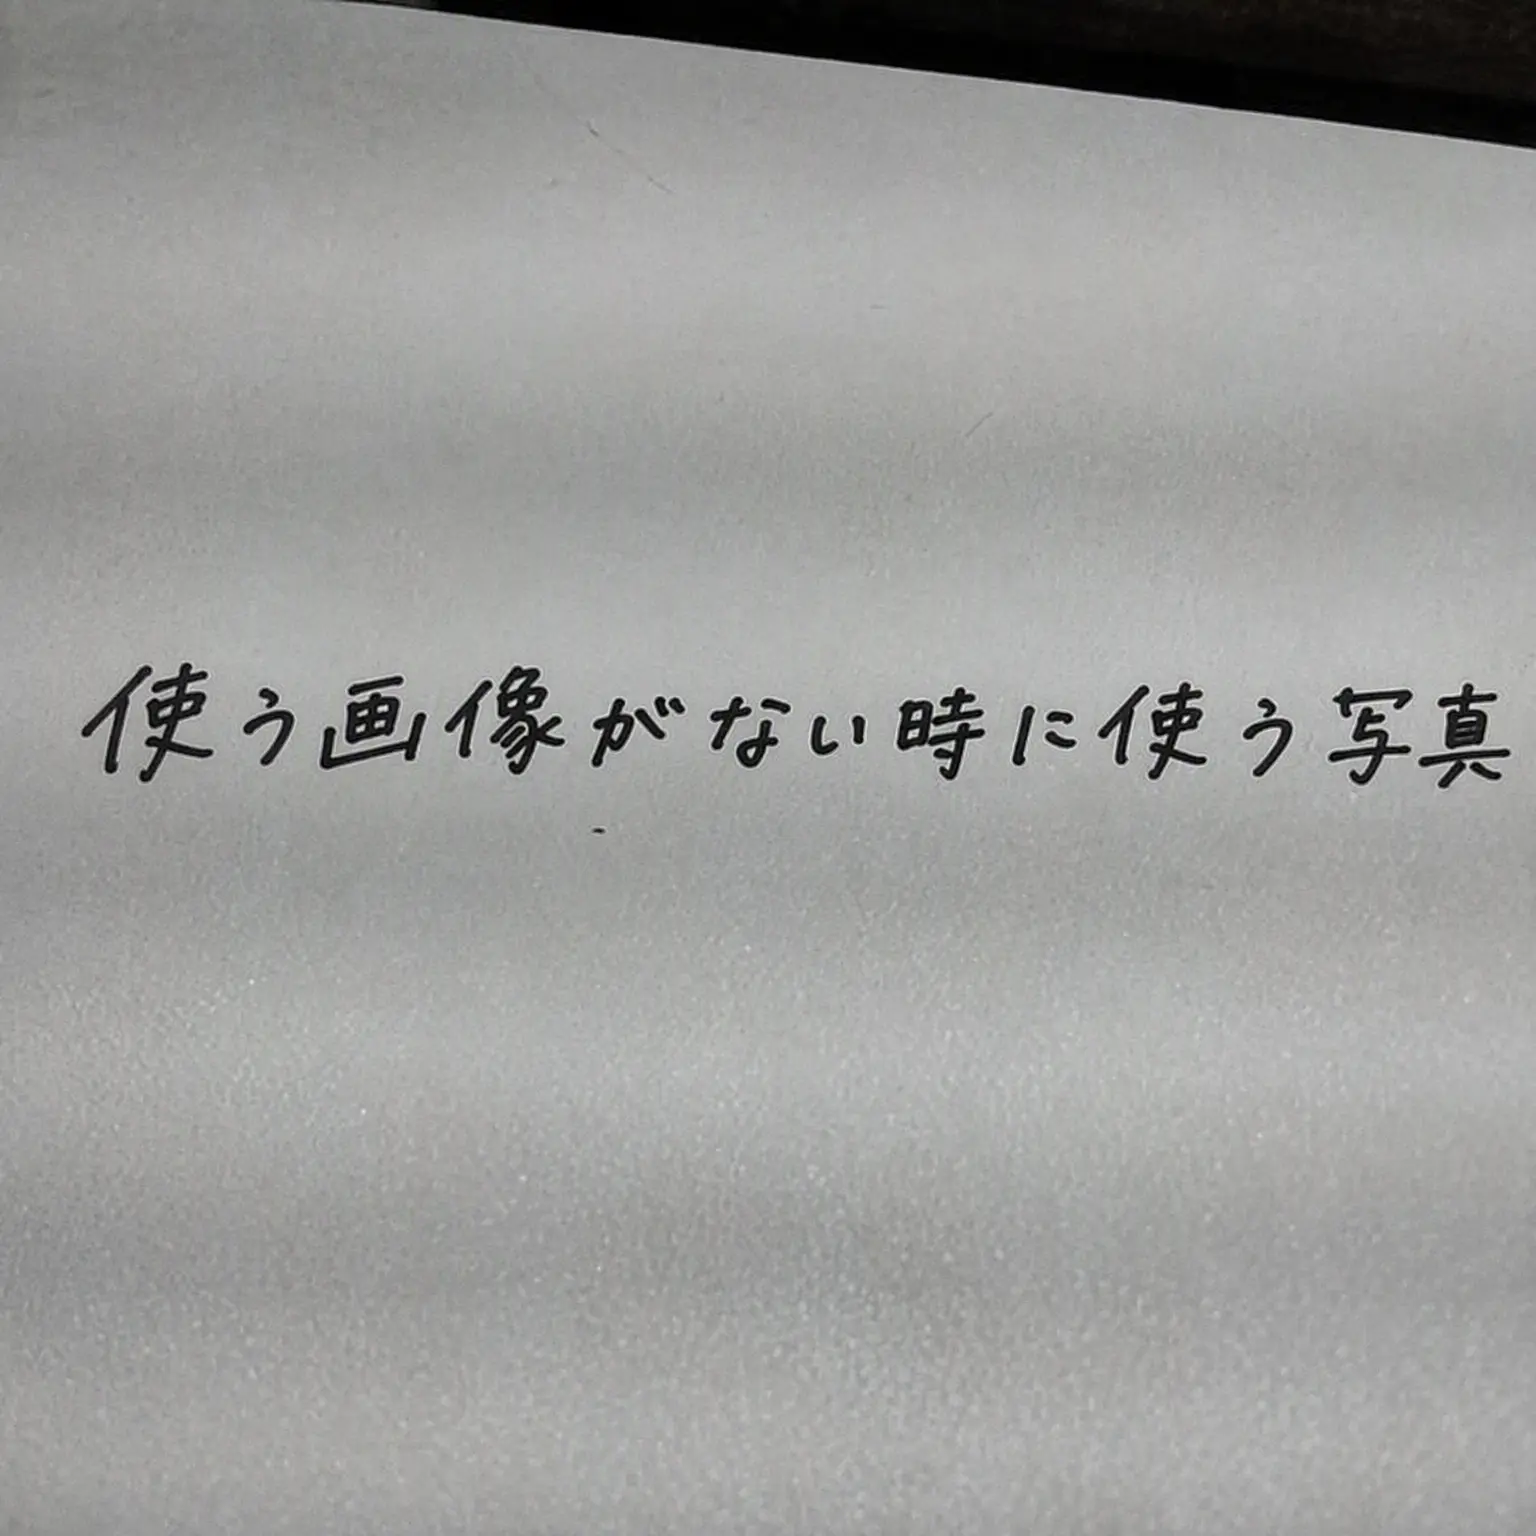 使う画像がない時に使う写真